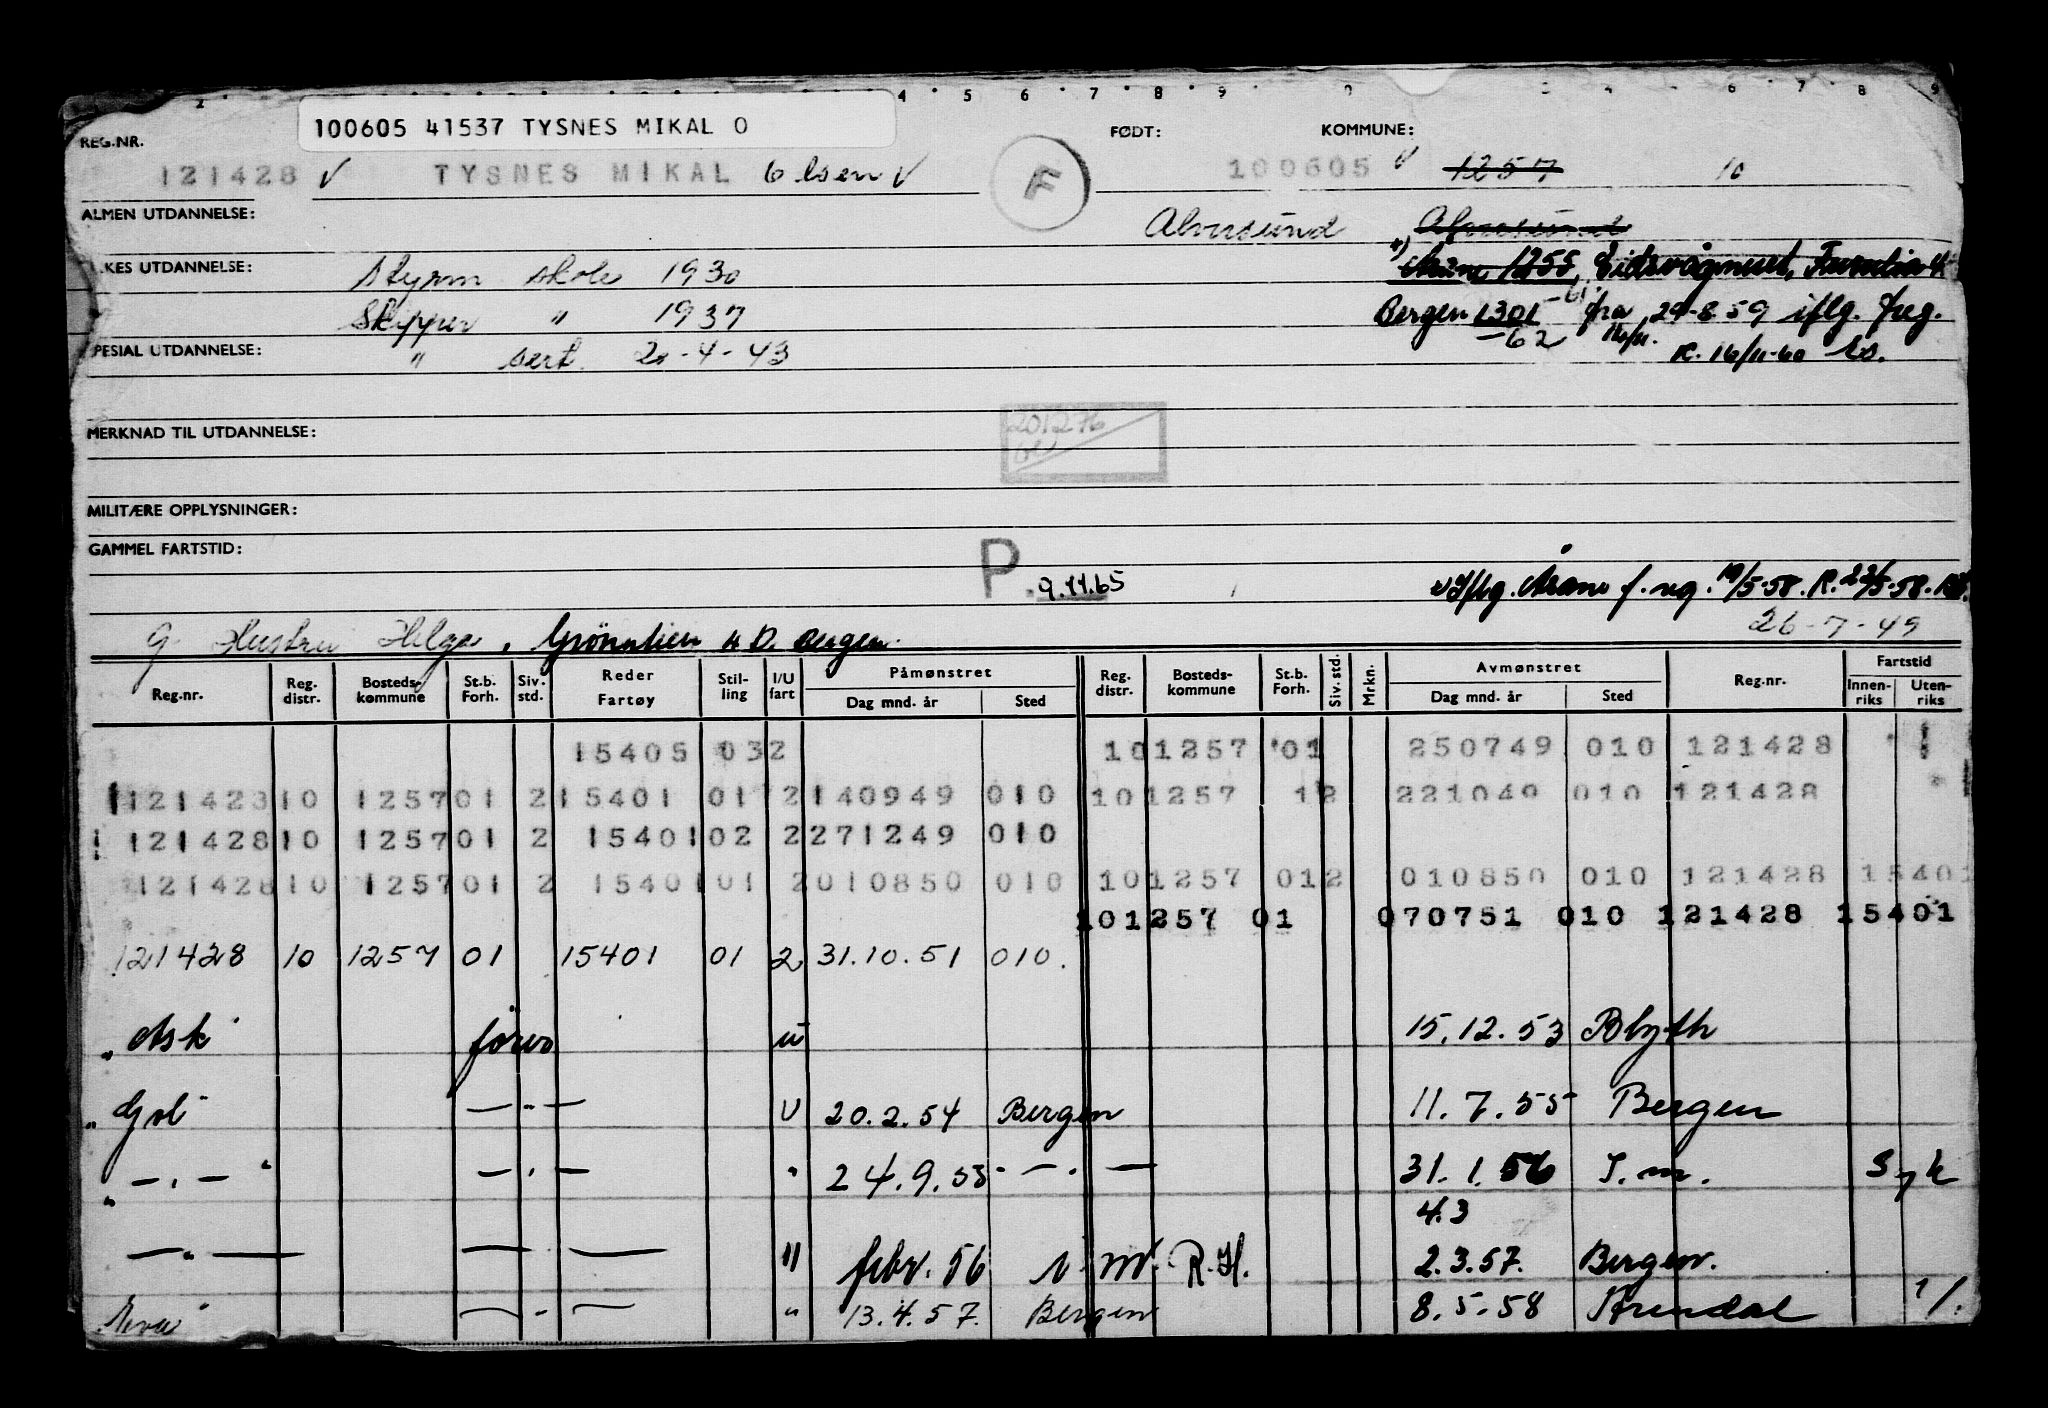 100605 41537 TYSNES MIKAL O
REG.NR. FØDT: KOMMUNE:
121428 V TYSNES MIKAL Olsen V F 100605 V 1257 10
ALMEN UTDANNELSE: Alversund Alversund
KES UTDANNELSE: Styrm skole 1930 1255, Eidsvågneset,
Skipper " 1937 Bergen 1301 -61. fra 29-8.59 iflg. freg.
PESIAL UTDANNELSE: " sert. 20-4-43 -62 R. 16/11-60
MERKNAD TIL UTDANNELSE: 201276
MILITÆRE OPPLYSNINGER:
GAMMEL FARTSTID:
P. 9.11.65 Iflg. Åsane f. reg. 19/5-58. R. 22/5-58.
26-7-49
G Hustru Helga, 4 D. Bergen.
Reg.nr. Reg. distr. Bosteds- kommune St.b. Forh. Siv. std. Reder Fartøy Stil- ling I/U fart Påmønstret Dag mnd. år Sted Reg. distr. Bosteds- kommune St.b. Forh. Siv. std. Mrkn. Avmønstret Dag mnd. år Sted Reg.nr. Fartstid Innen- riks Uten- riks
15405 032 10 1257 01 250749 010 121428
121428 10 1257 01 2 15401 01 2 140949 010 10 1257 12 221049 010 121428
121428 10 1257 01 2 15401 02 2 271249 010
121428 10 1257 01 2 15401 01 2 010850 010 10 1257 012 010850 010 121428 15401
101257 01 070751 010 121428 15401
121428 10 1257 01 15401 01 2 31.10.51 010.
"Ask" förer u 15.12.53 Blyth
"Gol" — " — U 20.2.54 Bergen 11.7.55 Bergen
" — . — " — . — " 24.9.55 — . — 31.1.56 I.m. Syk
4.3
— " — — — " febr. 56 i. m. R.H. 2.3.57. Bergen.
— . — " 13.4.57. Bergen 8.5.58 Arendal 1/.